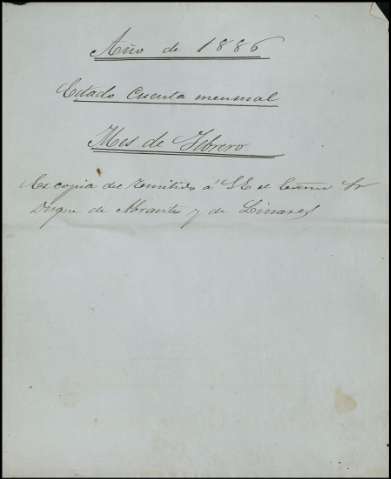 Año de 1886
Estado Cuenta mensual
Mes de Febrero
Es copia del remitido á S.E. el Excmo Sr
Duque de Abrantes y de Linares